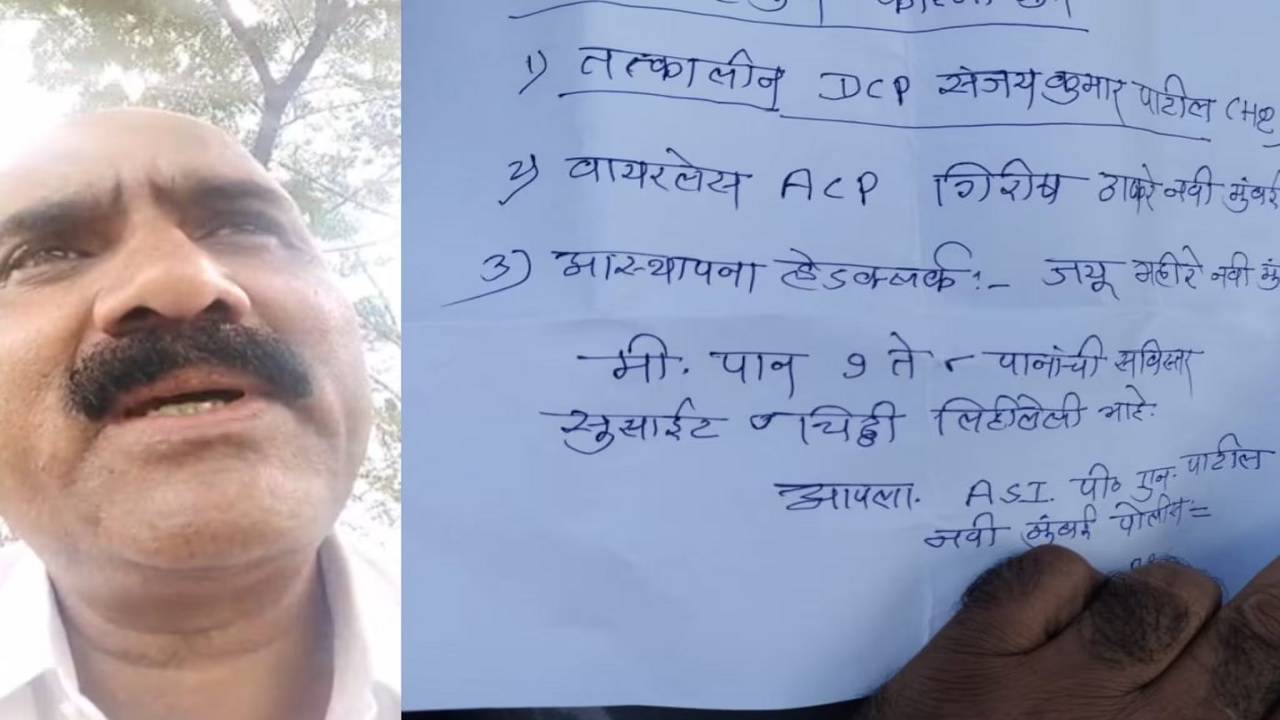 १) तत्कालीन DCP संजयकुमार पाटील
२) वायरलेस ACP गिरीष ठाकरे नवी मुंबई
३) आस्थापना हेडक्लर्क:- जयू अहीरे नवी
मी. पान १ ते ८ पानांची सविस्तर
सुसाईट चिठ्ठी लिहीलेली आहे.
आपला. ASI. पी० एन. पाटील
नवी मुंबई पोलीस=